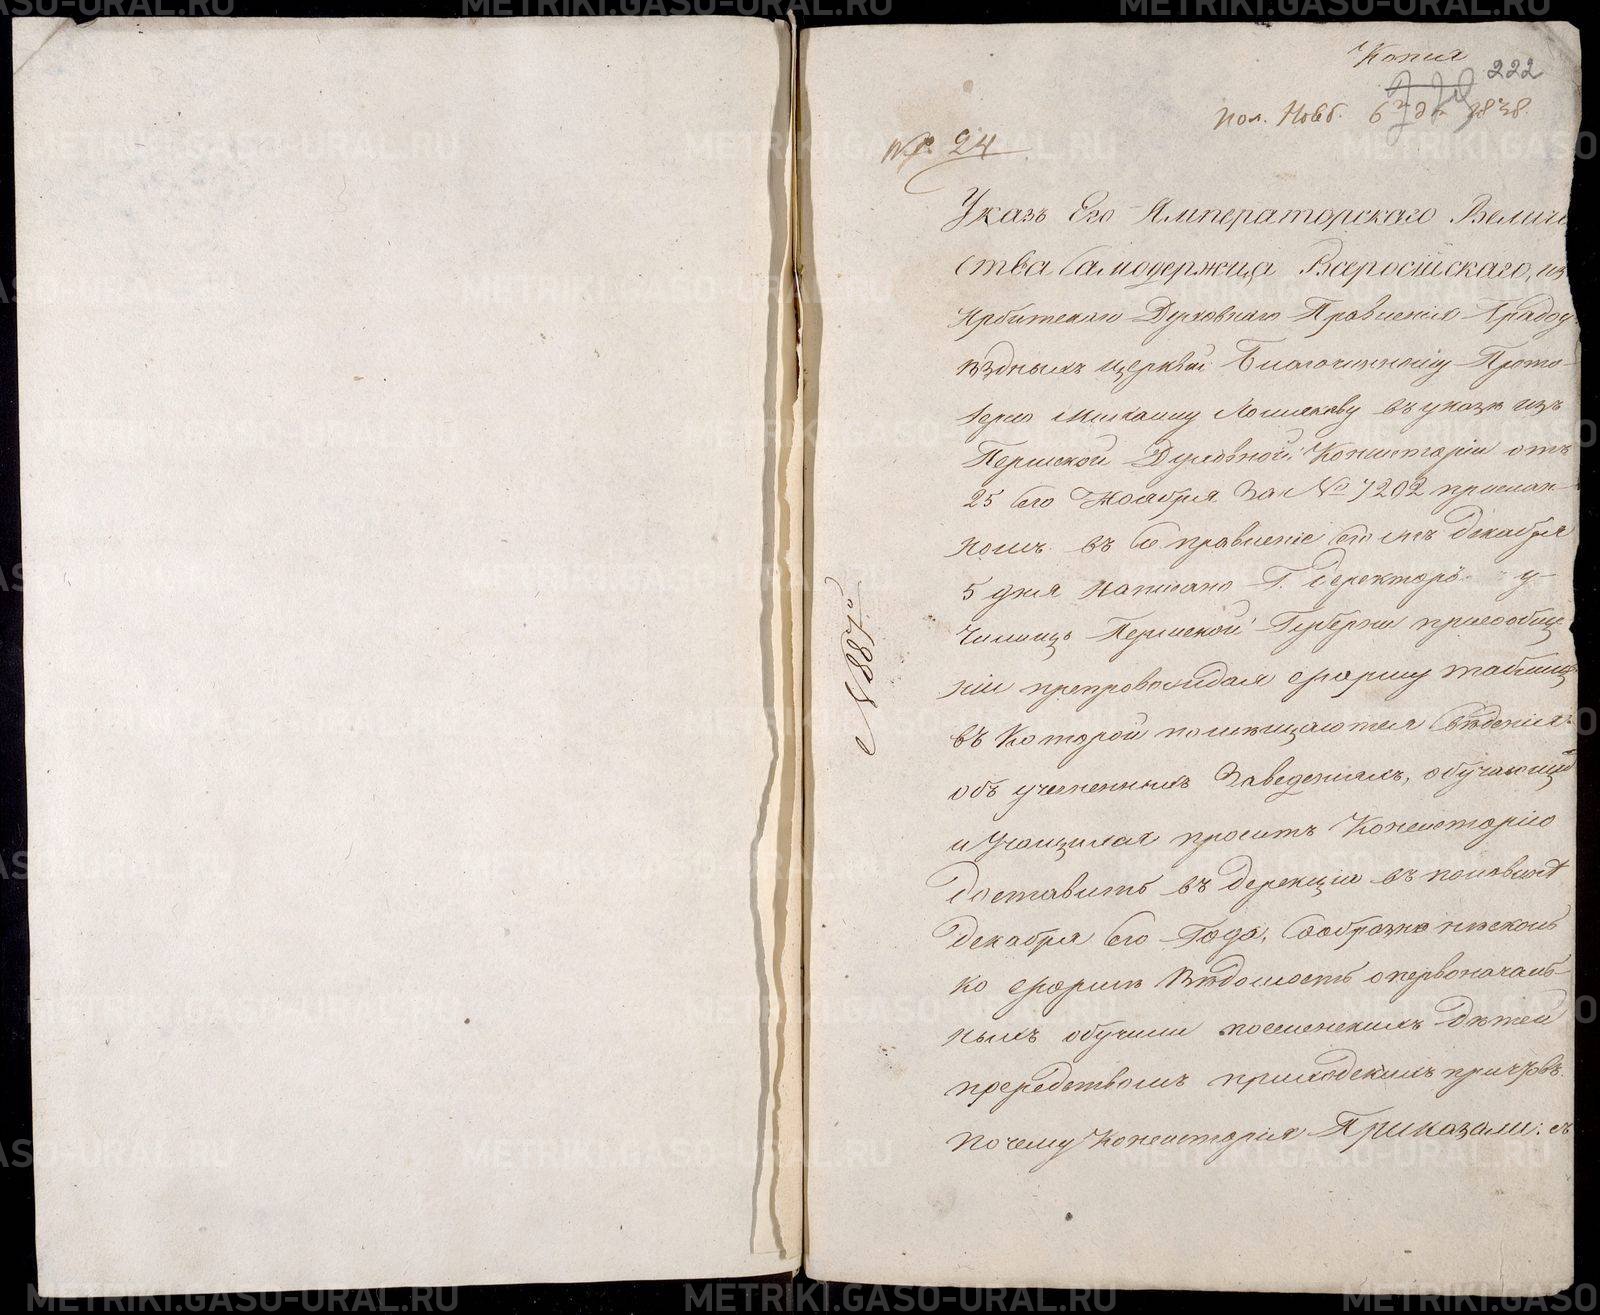 Копия
222
пол. Нояб. 6 1838.
№ 24
Указъ Его Императорскаго Велич
ства Самодержца Всеросійскаго, из
Ирбитскаго Духовнаго Правленія Градоу
ѣздныхъ церквей Благочинному Прото-
іерею Михаилу въ указѣ изъ
Пермской Духовной Консисторіи отъ
25 сего Ноября за № 7202 прислан-
номъ въ сіе правленіе сего мѣ Декабря
5 дня написано Г. Деректоръ у-
чилищъ Пермской Губерніи при сообще
ніи препровождая форму таблицы
въ которой помѣщаются Свѣденія
объ учебныхъ Заведеніяхъ, обучающих
и Учащихся проситъ Консисторію
доставить въ дерекцію въ половинѣ
Декабря сего Года, Сообразно нѣсколь
ко формѣ Вѣдомость о первоначаль-
ныхъ обученіи поселенскихъ дѣтей
посредствомъ приходскихъ причтовъ.
почему Консисторія Приказали: съ
№ 887.